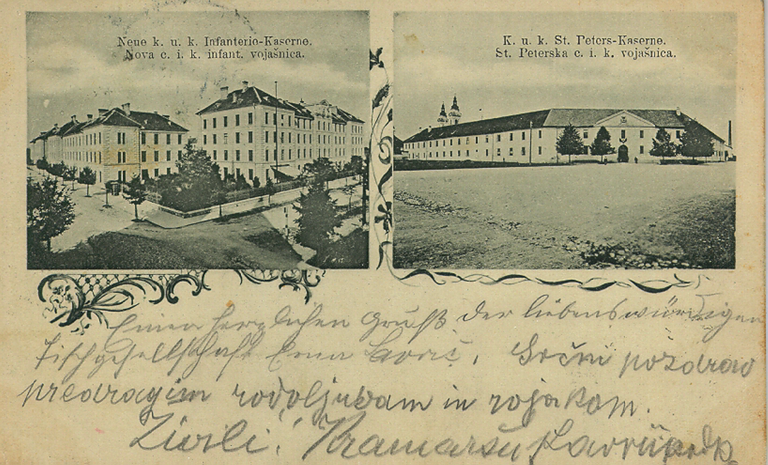 Neue k. u. k. Infanterie-Kaserne.
Nova c. i k. infant. vojašnica.
K. u. k. St. Peters-Kaserne.
St. Peterska c. i. k. vojašnica.
Einen herzlichen Gruß der liebenswürdigen
Tischgesellschaft Srčni pozdrav
predragim rodoljubam in rojakom.
Živili!